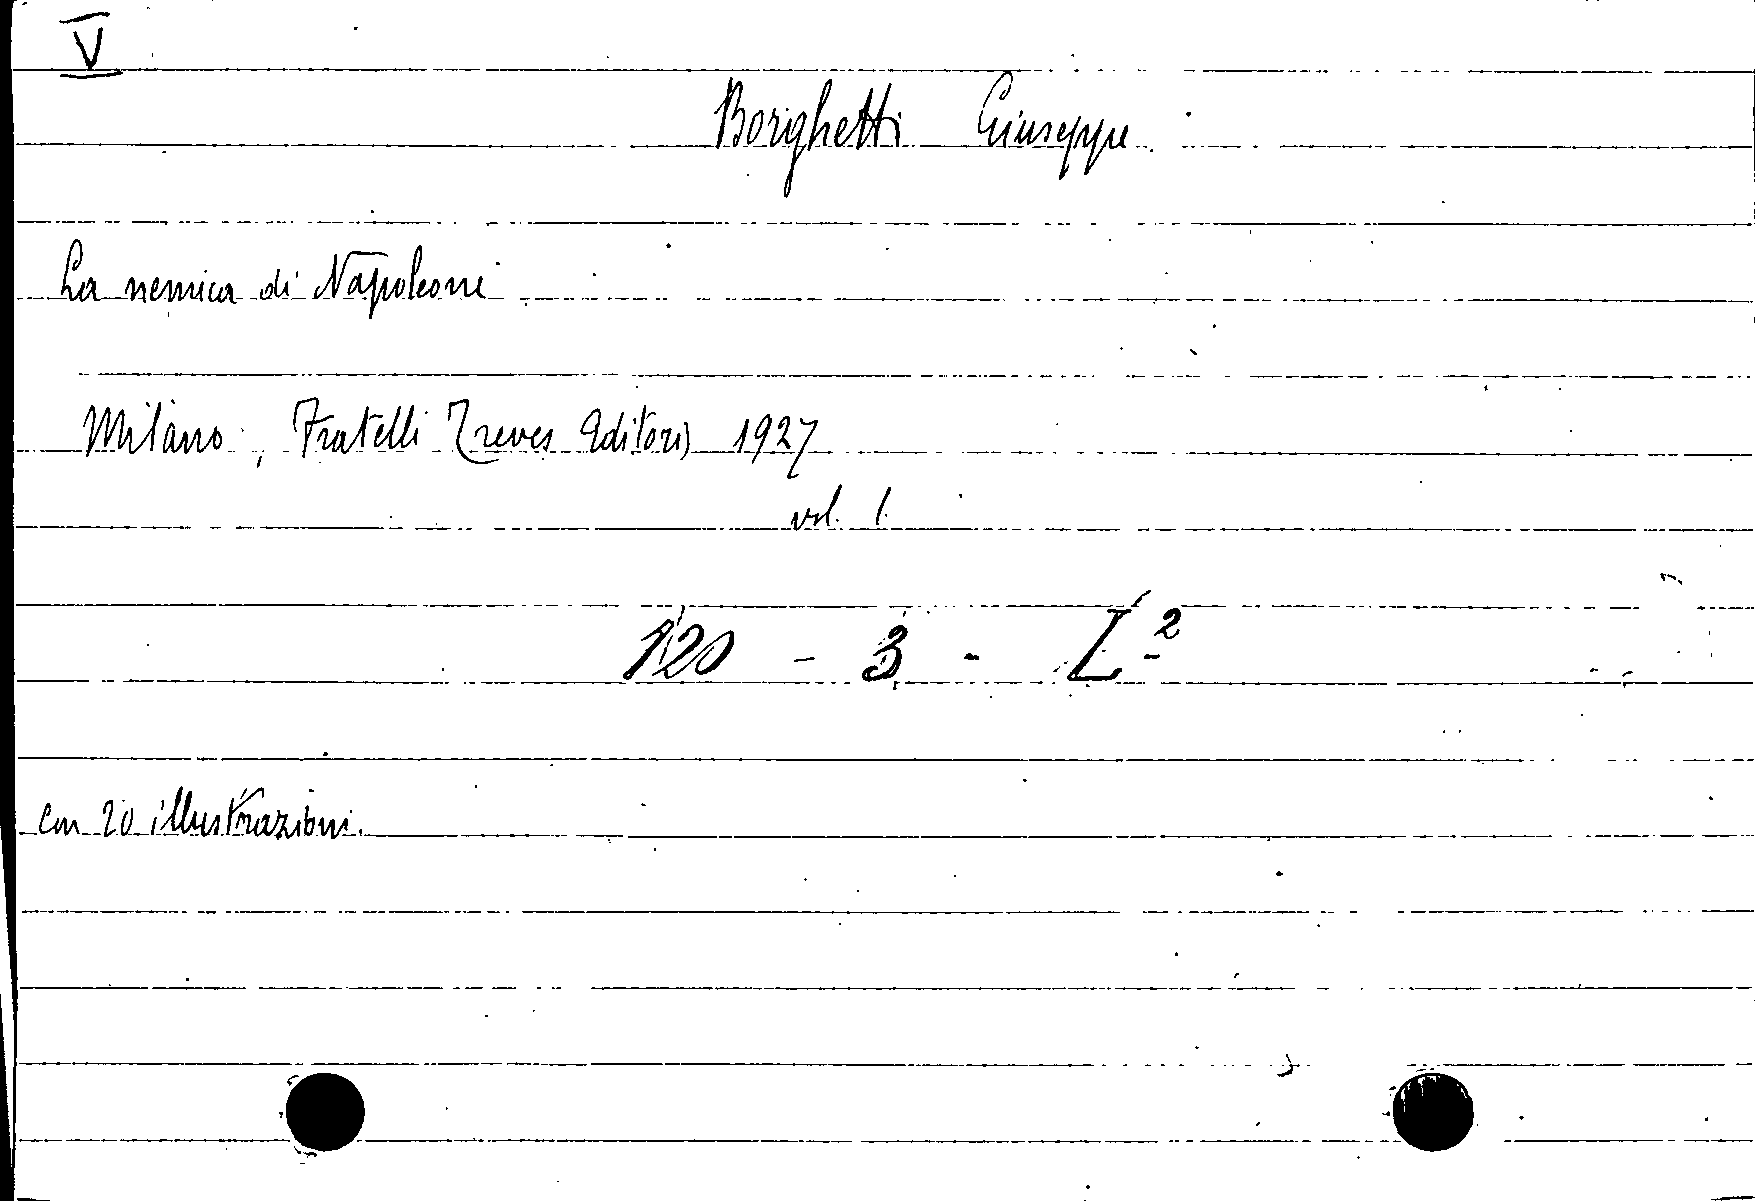 V
Borghetti Giuseppe.
La nemica di Napoleone
Milano, Fratelli Treves Editori 1927
vol. 1.
120 - 3 - L²
con 20 illustrazioni.